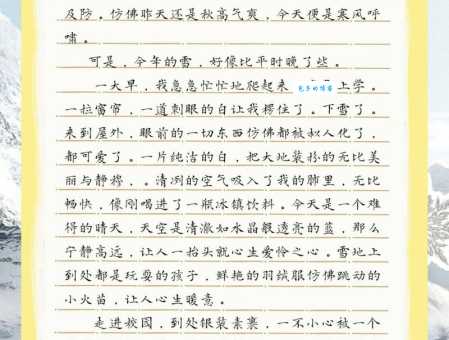 及防。仿佛昨天还是秋高气爽,今天便是寒风呼
啸。
可是,今年的雪,好像比平时晚了些。
一大早,我急急忙忙地爬起来 上学。
一拉窗帘,一道刺眼的白让我楞住了。下雪了。
来到屋外,眼前的一切东西仿佛都被拟人化了,
都可爱了。一片纯洁的白,把大地装扮的无比美
丽与静穆,。清冽的空气吸入了我的肺里,无比
畅快,像刚喝进了一瓶冰镇饮料。今天是一个难
得的晴天,天空是清澈如水晶般透亮的蓝,那么
宁静高远,让人一抬头就心生爱怜之心。雪地上
到处都是玩耍的孩子,鲜艳的羽绒服仿佛跳动的
小火苗,让人心生暖意。
走进校园,到处银装素裹,一不小心被一个